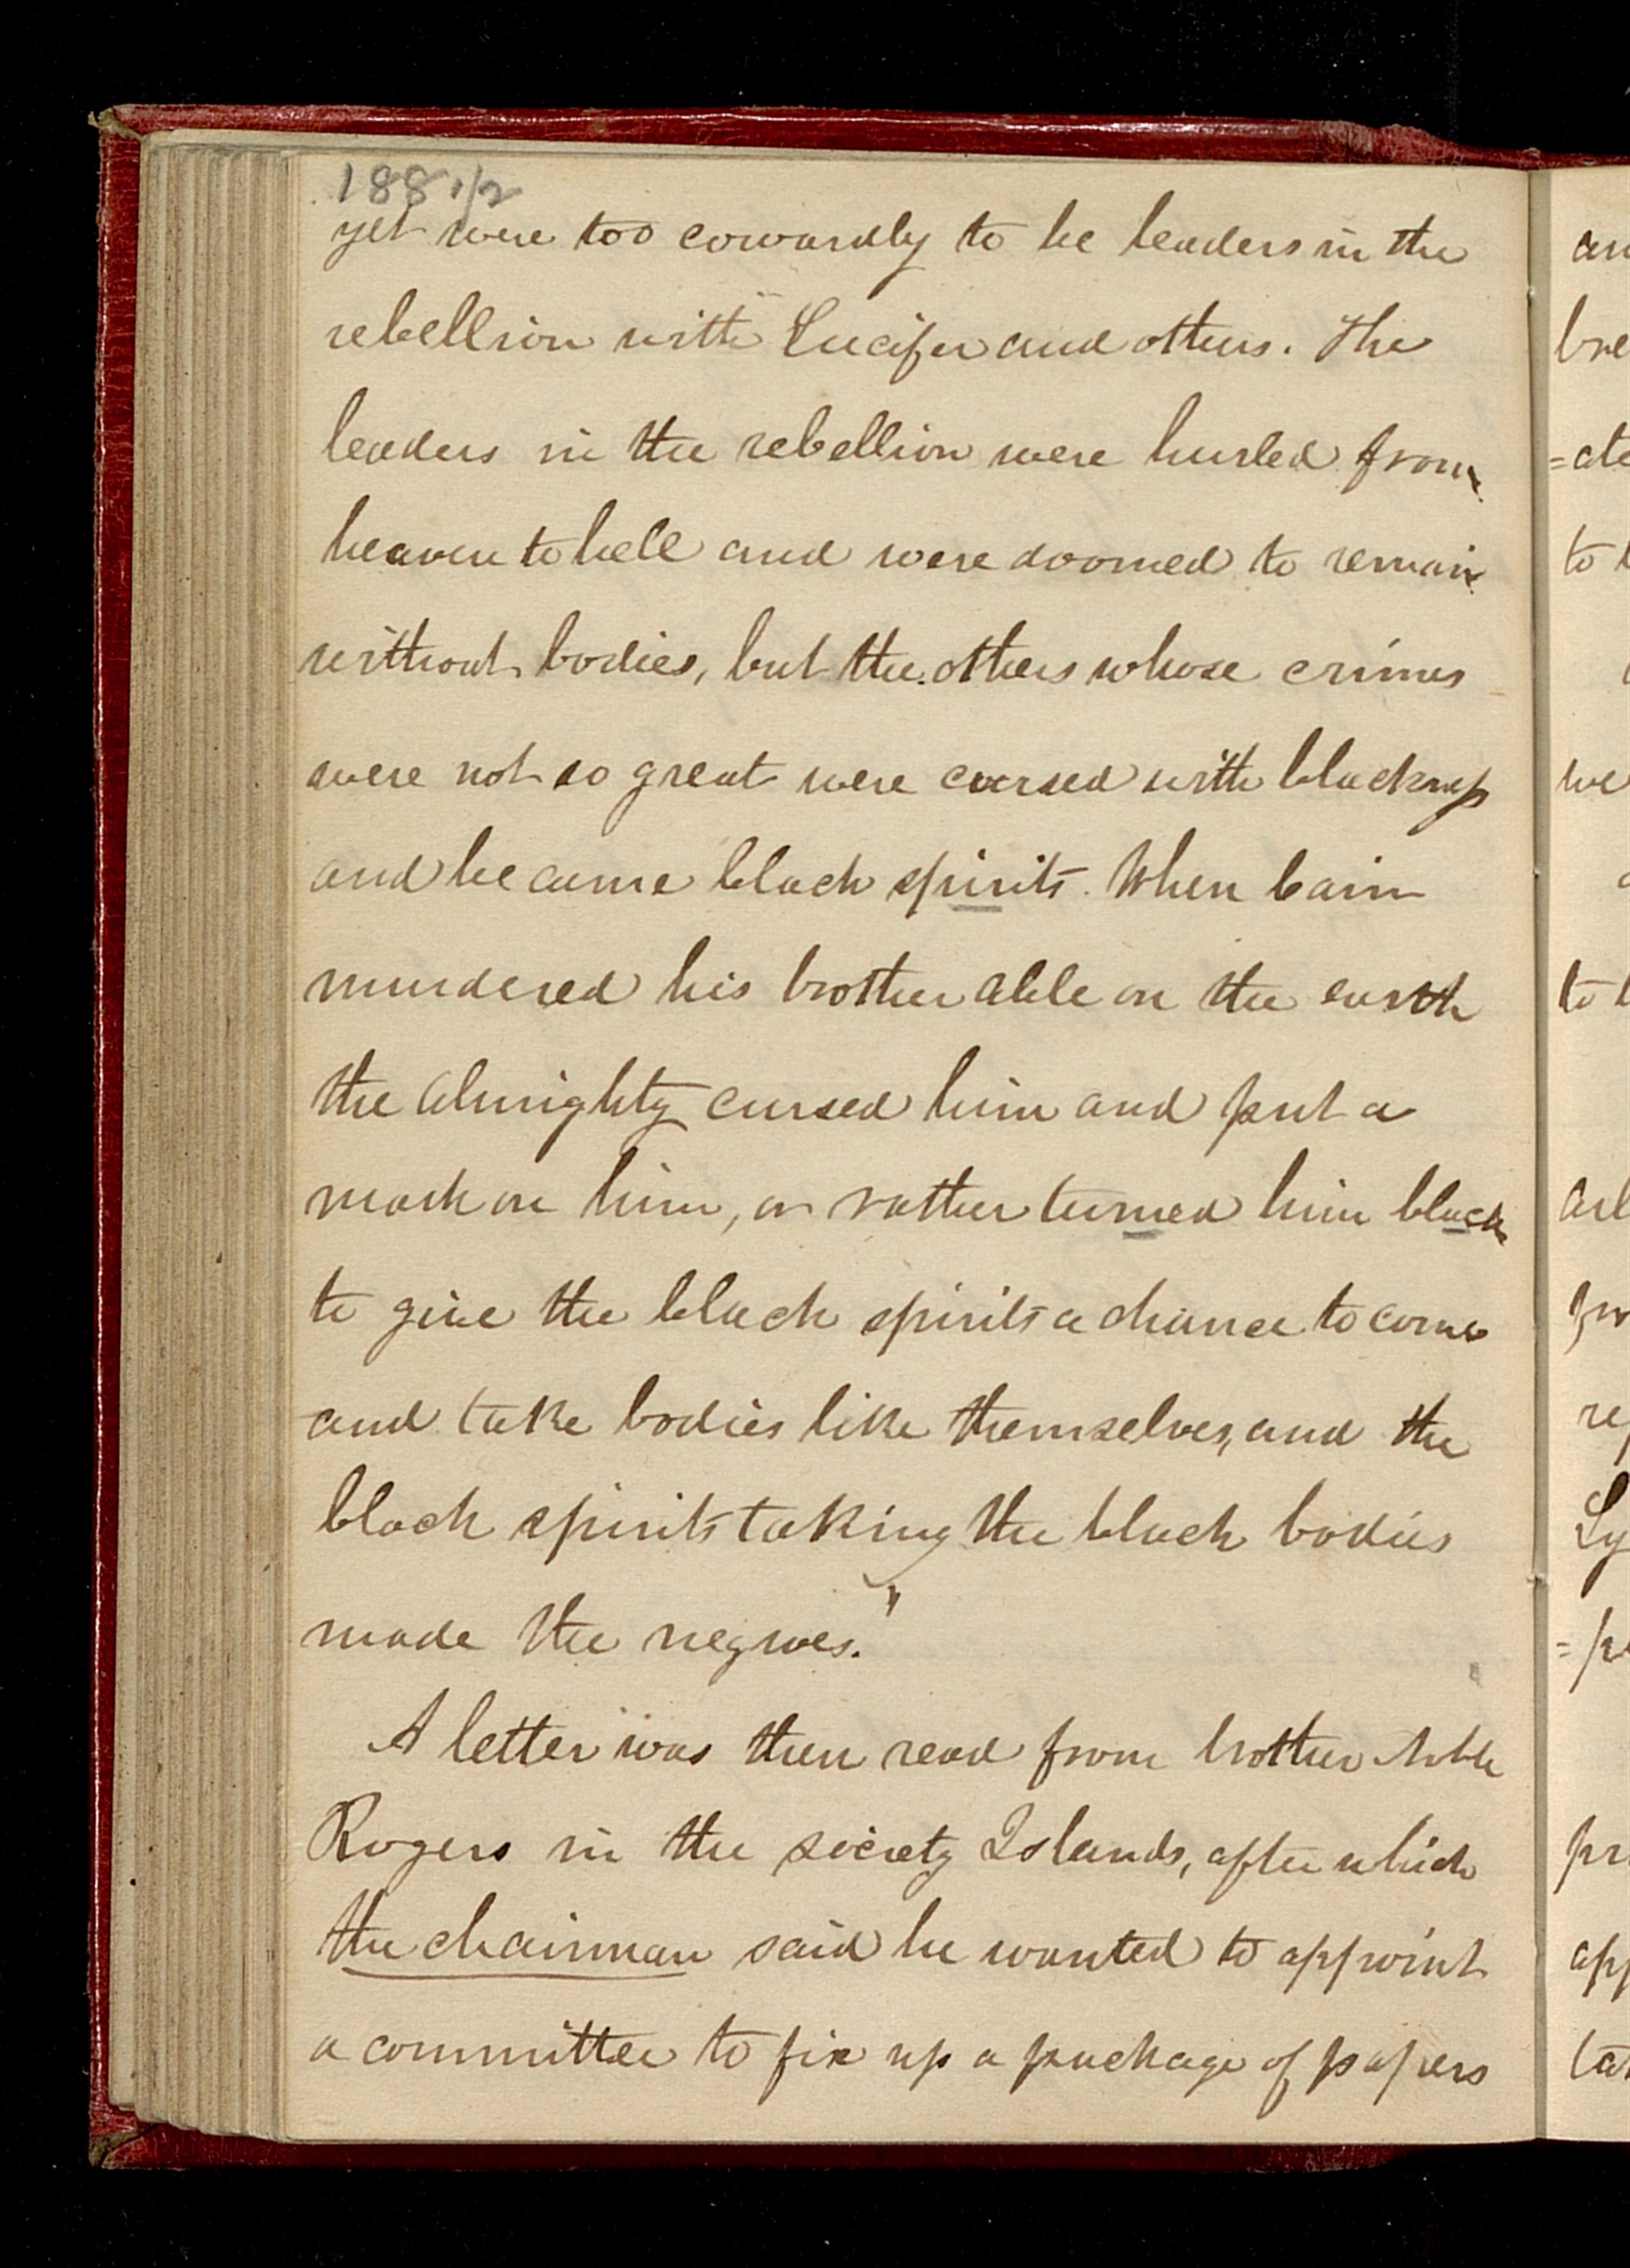 188 1/2
yet were too cowardly to be leaders in the
rebellion with Lucifer and others. The
leaders in the rebellion were hurled from
heaven to hell and were doomed to remain
without bodies, but the others whose crimes
were not so great were cursed with blackness
and became black spirits. When Cain
murdered his brother Able on the earth
the Almighty cursed him and put a
mark on him, or rather turned him black
to give the black spirits a chance to come
and take bodies like themselves, and the
black spirits taking the black bodies
made the negroes."
A letter was then read from brother Noble
Rogers in the society Islands, after which
the chairman said he wanted to appoint
a committee to fix up a package of papers